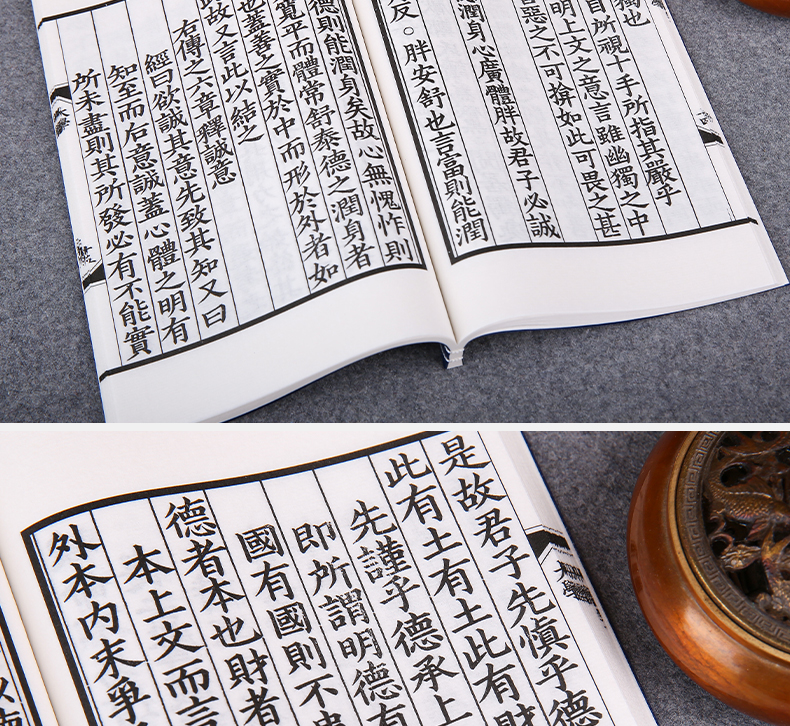 獨也
目所視十手所指其嚴乎
明上文之意言雖幽獨之中
惡之不可揜如此可畏之甚
潤身心廣體胖故君子必誠
反。胖安舒也言富則能潤
德則能潤身矣故心無愧怍則
寬平而體常舒泰德之潤身者
也蓋善之實於中而形於外者如
此故又言此以結之
右傳之六章釋誠意
經曰欲誠其意先致其知又曰
知至而后意誠蓋心體之明有
所未盡則其所發必有不能實
大學
大學
是故君子先慎乎德
此有土有土此有財
先謹乎德承上
即所謂明德有
國有國則不患
德者本也財者
本上文而言
外本內末爭